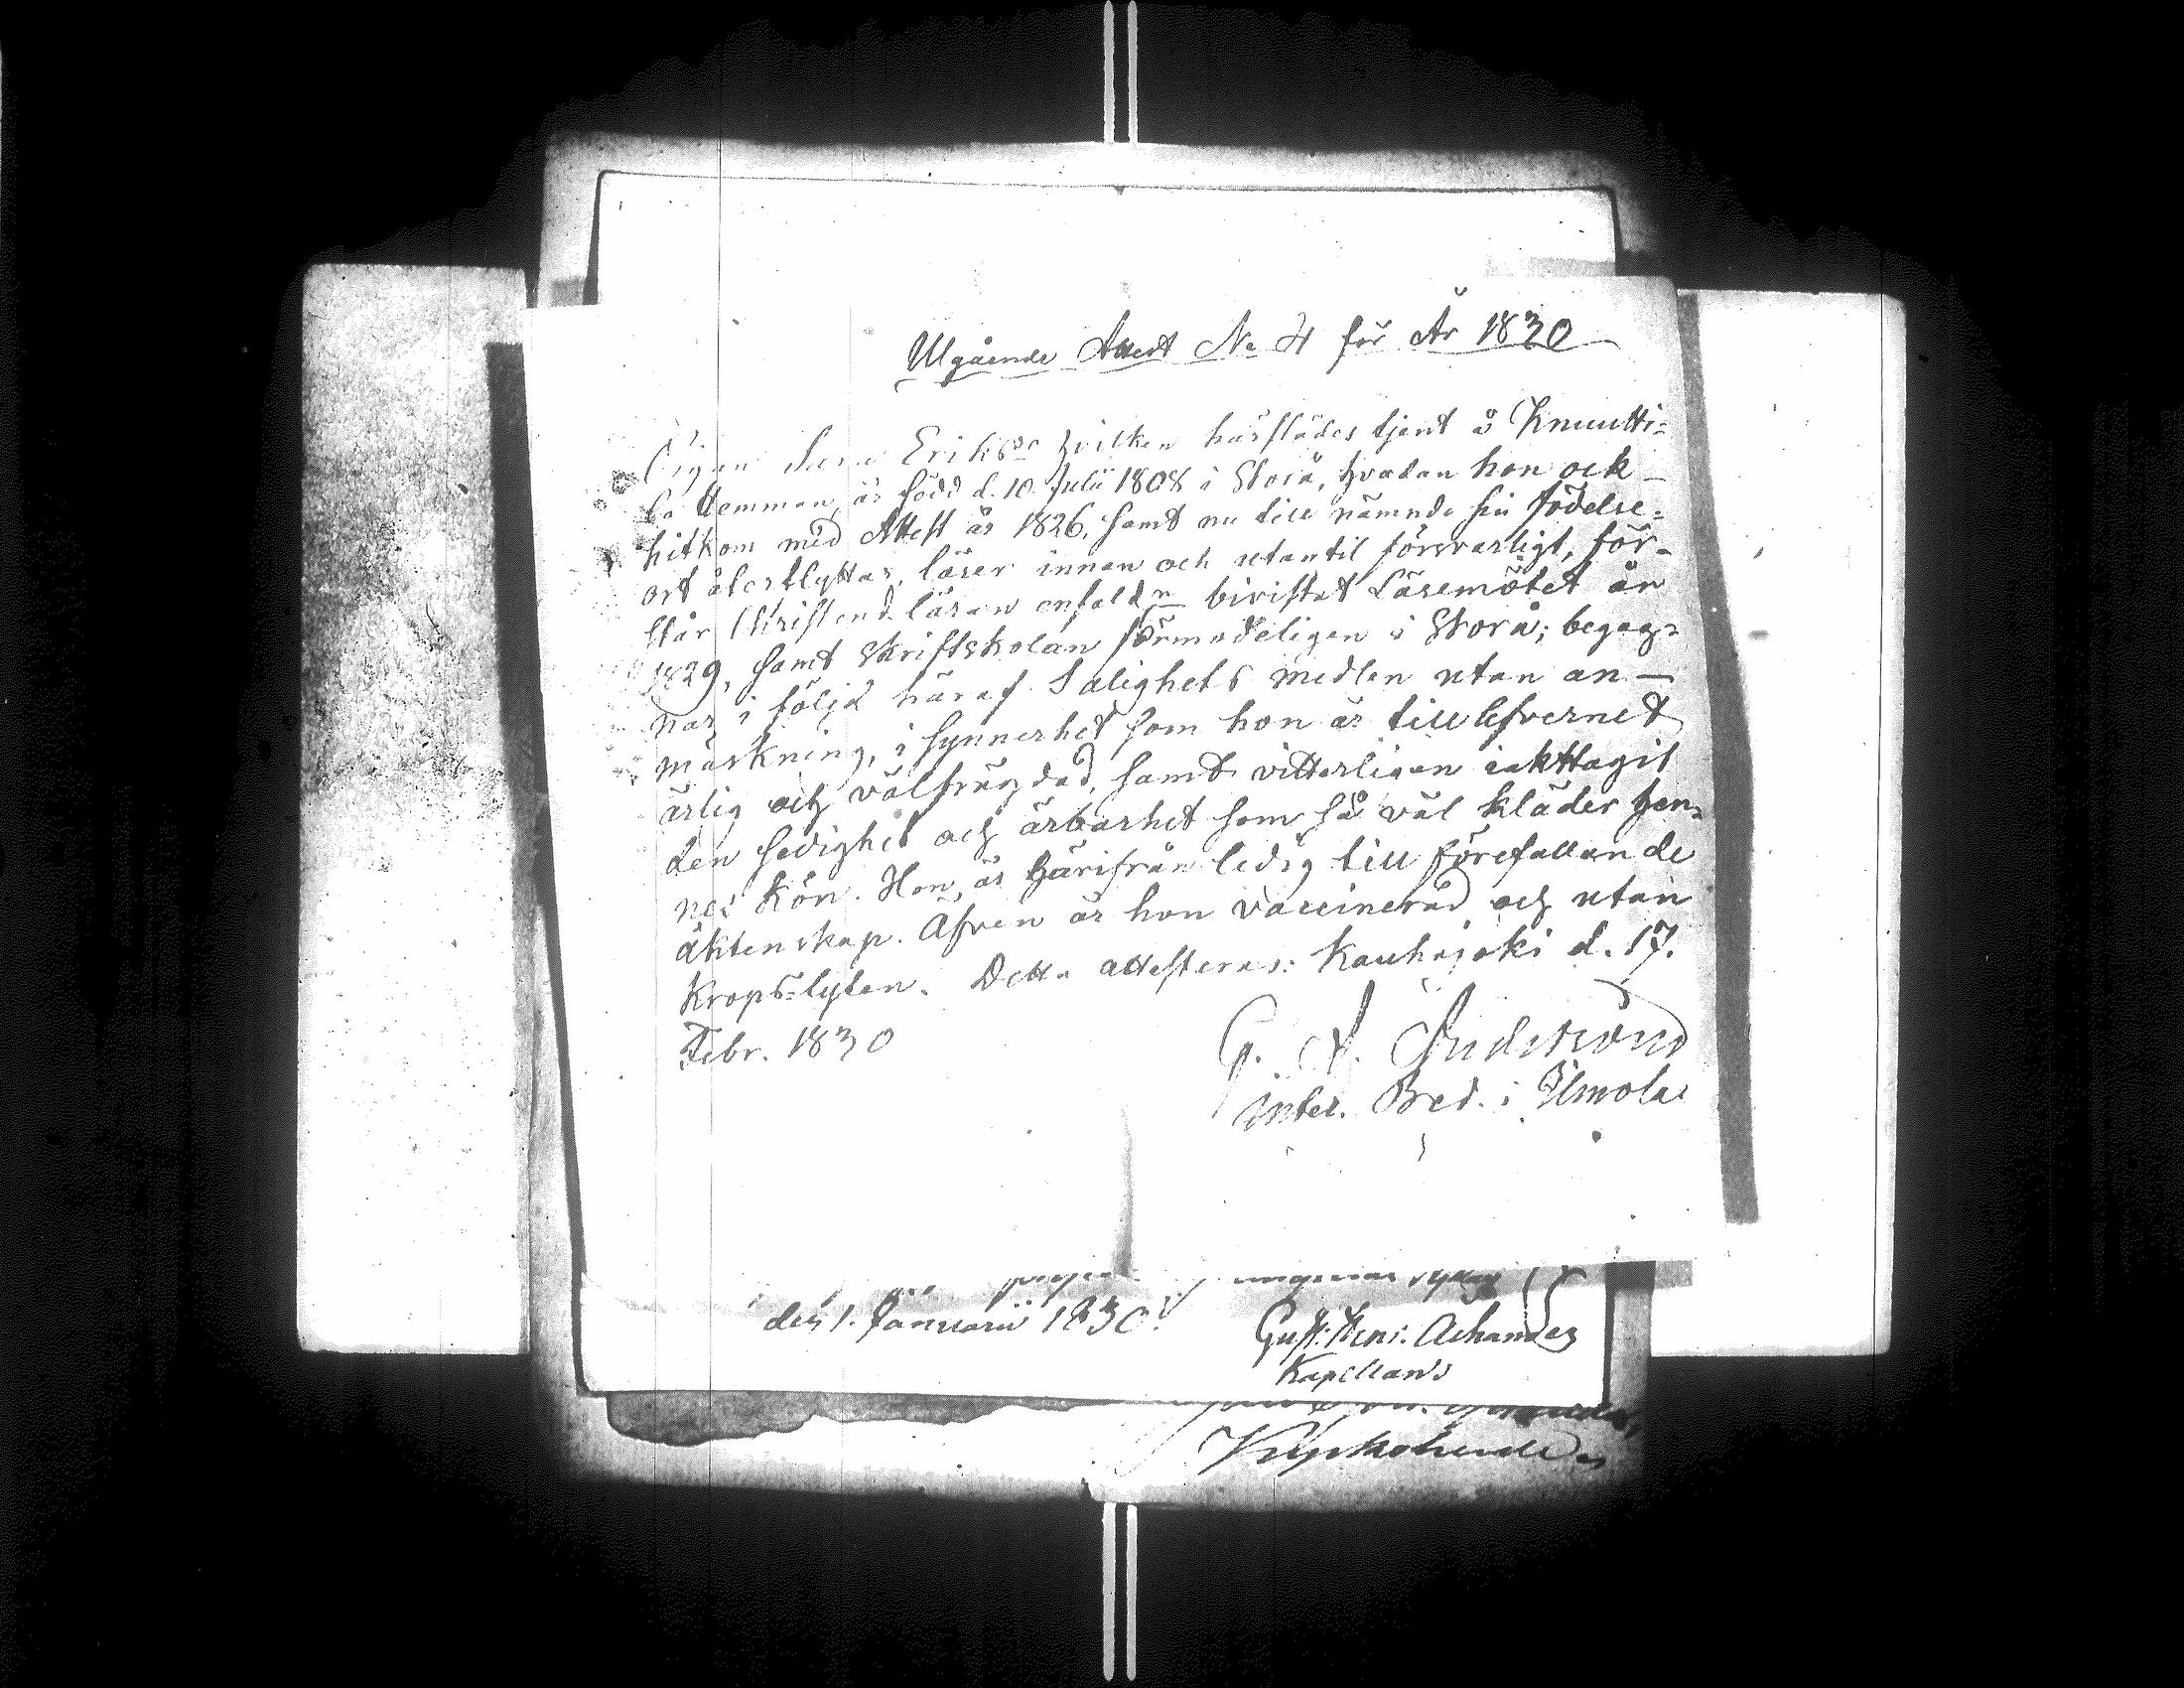 Utgående Attest No 4 för År 1830
Pigan Eriksdr hvilken härstädes tjent å Knuutti-
la Hemman, är född d. 10. Julii 1808 i Storå, hvadan hon ock
hitkom med Attest år 1826, samt nu till nämnde sin födelse-
ort återflyttar, läser innan och utantil försvarligt, för-
står Christend. läran enfaldn bivistat Läsemötet år
1829, samt Skriftskolan förmodeligen i Storå; begag-
nar i följd häraf Salighets medlen utan an-
märkning, i synnerhet som hon är till lefvernet
ärlig och välfrägdad, samt vitterligen iakttagit
den sedighet och ärbarhet som så väl kläder hen-
nes Kön. Hon är härifrån ledig till förefallande
äktenskap. Äfven är hon vaccinerad och utan
Kropslyten. Detta attesteras: Kauhajoki d. 17.
Febr. 1830
G. A.
inter. Pred. i Ilmola
den 1. Januarii 1830.
Gust: Hen: Achander
Kapellans
Kyrkoherde